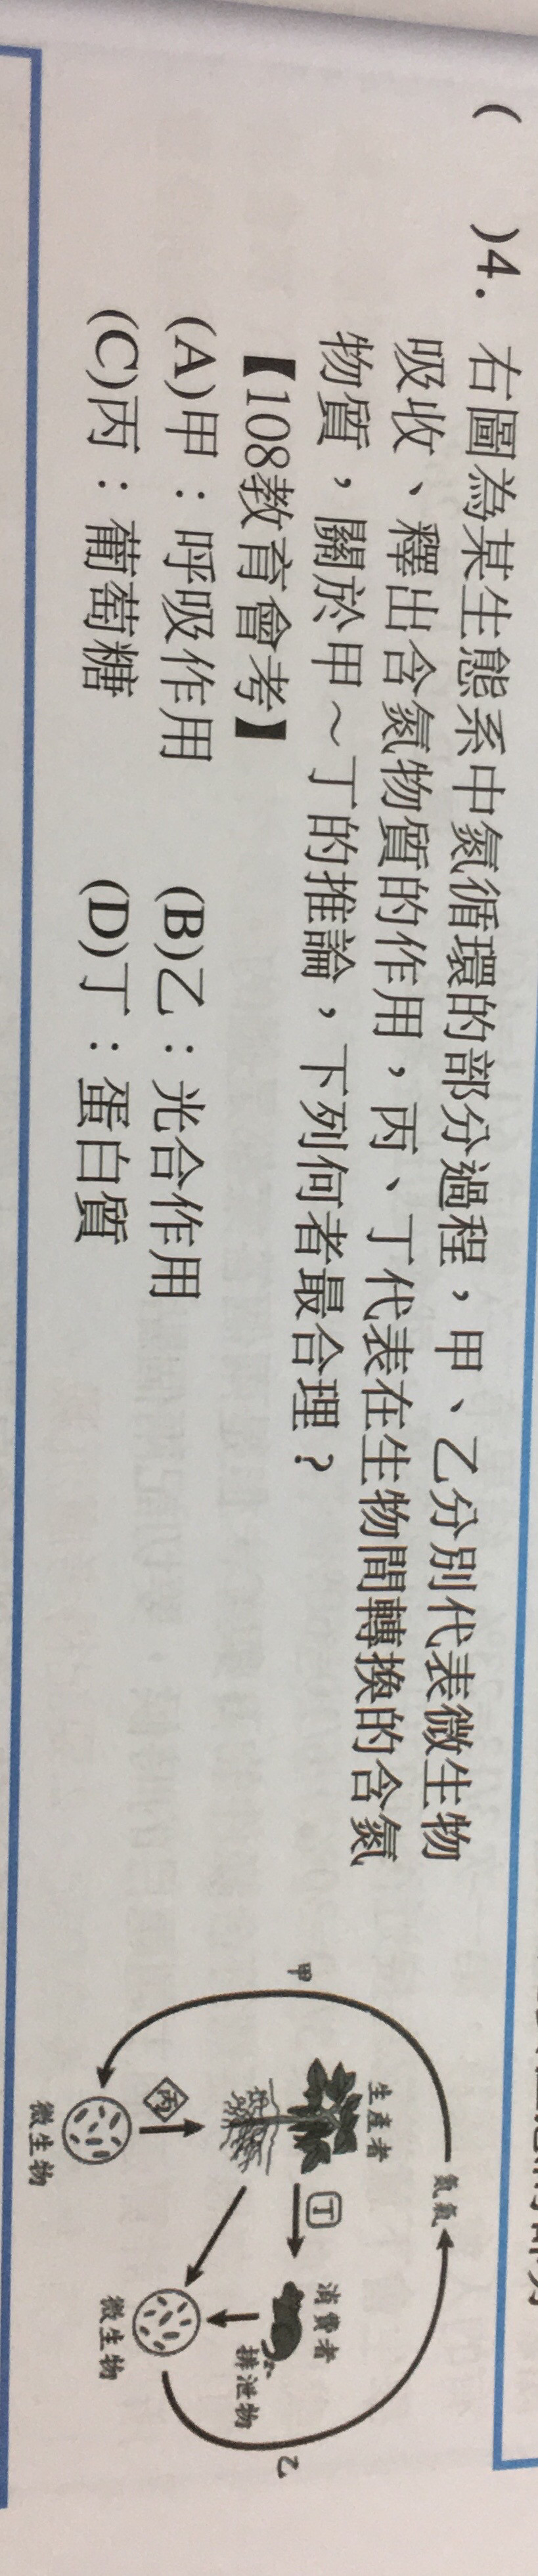 (　)4. 右圖為某生態系中氮循環的部分過程，甲、乙分別代表微生物
吸收、釋出含氮物質的作用，丙、丁代表在生物間轉換的含氮
物質，關於甲～丁的推論，下列何者最合理？
【108教育會考】
(A)甲：呼吸作用　(B)乙：光合作用
(C)丙：葡萄糖　(D)丁：蛋白質
氮氣
甲
生產者
丁
消費者
丙
排泄物
乙
微生物
微生物